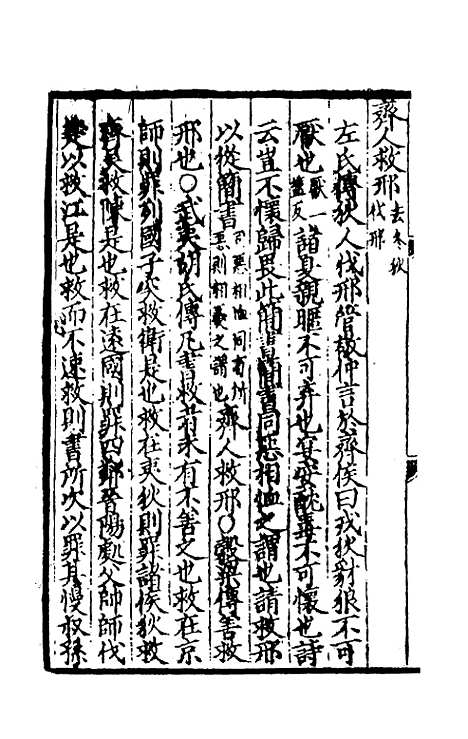 齊人救邢去冬狄伐邢
左氏傳狄人伐邢管敬仲言於齊侯曰戎狄豺狼不可
厭也厭一塩反諸夏親暱不可弃也宴安酖毒不可懷也詩
云豈不懷歸畏此簡書簡書同惡相恤之謂也請救邢
以從簡書同惡相恤同有所惡則相憂之謂也齊人救邢〇穀梁傳善救
邢也〇武夷胡氏傳凡書救者未有不善之也救在京
師則罪列國子突救衛是也救在夷狄則罪諸侯狄救
齊是也救在遠國則罪四鄰晉陽處父帥師伐
楚以救江是也救而不速救則書所次以罪其慢叔孫